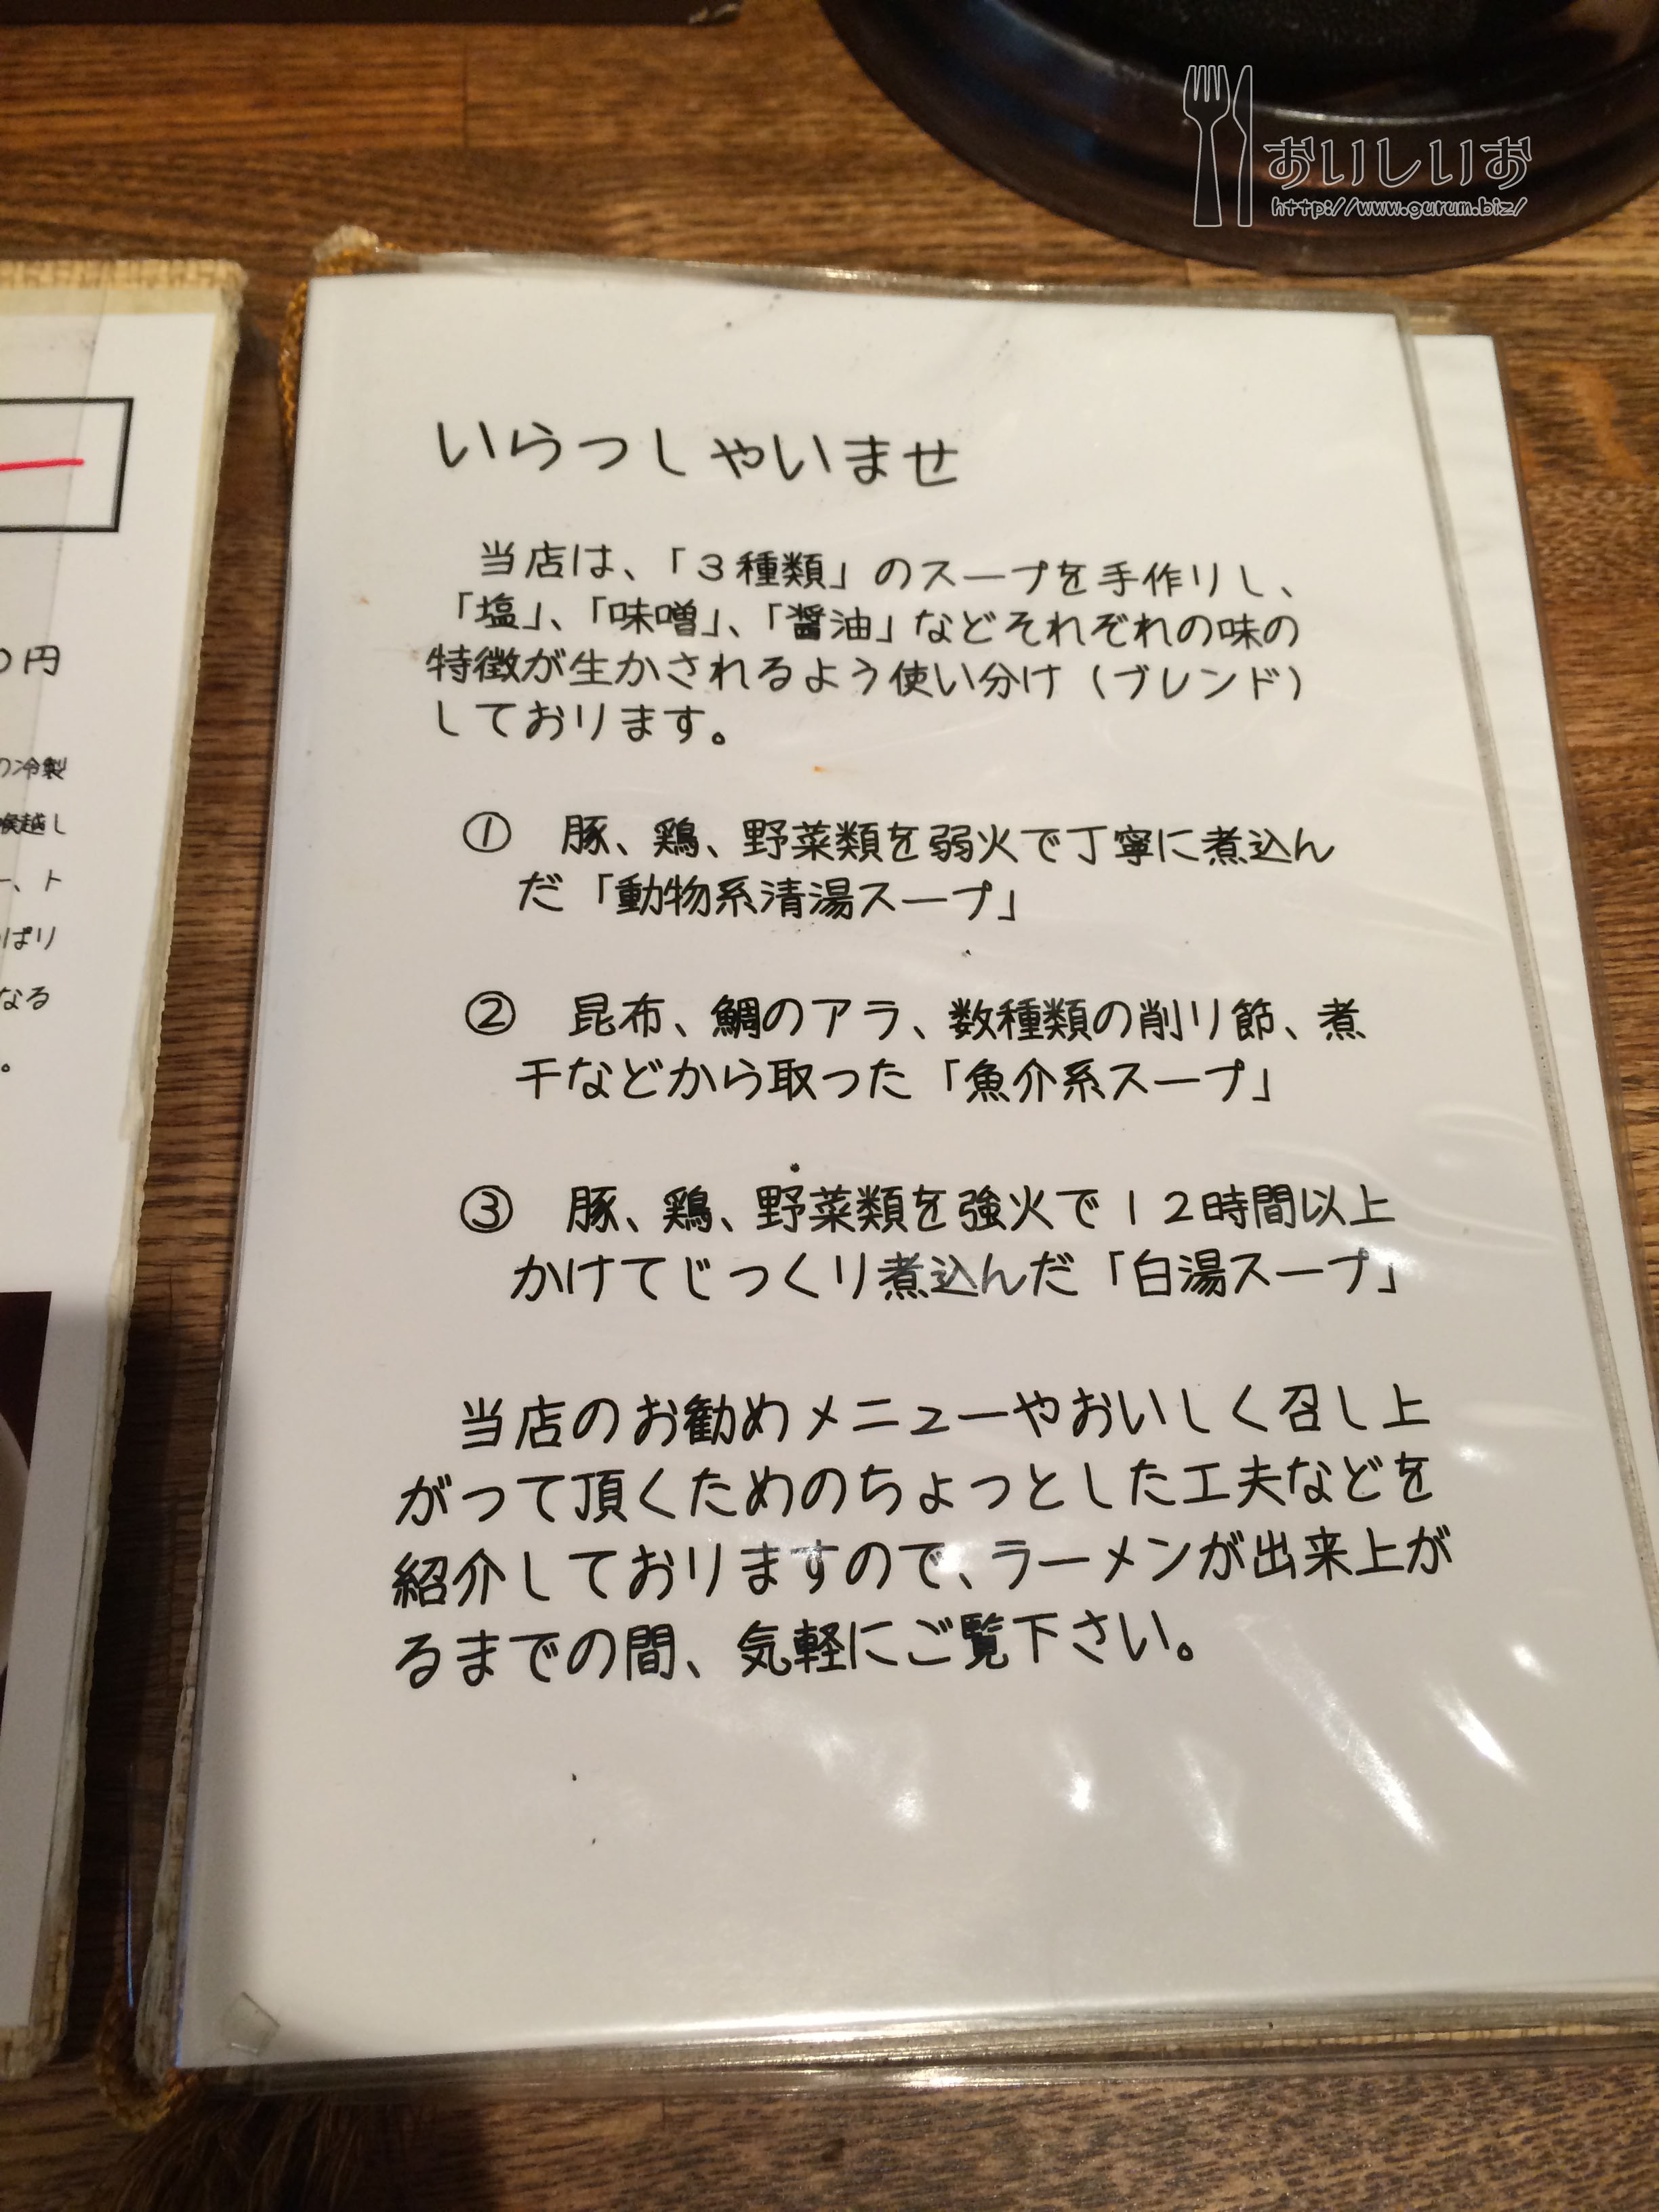 おいしいお
http://www.gurum.biz/
円
の冷製
喉越し
ー、ト
ぱり
なる
。
いらっしゃいませ
当店は、「３種類」のスープを手作りし、
「塩」、「味噌」、「醤油」などそれぞれの味の
特徴が生かされるよう使い分け（ブレンド）
しております。
① 豚、鶏、野菜類を弱火で丁寧に煮込ん
だ「動物系清湯スープ」
② 昆布、鯛のアラ、数種類の削り節、煮
干などから取った「魚介系スープ」
③ 豚、鶏、野菜類を強火で１２時間以上
かけてじっくり煮込んだ「白湯スープ」
当店のお勧めメニューやおいしく召し上
がって頂くためのちょっとした工夫などを
紹介しておりますので、ラーメンが出来上が
るまでの間、気軽にご覧下さい。